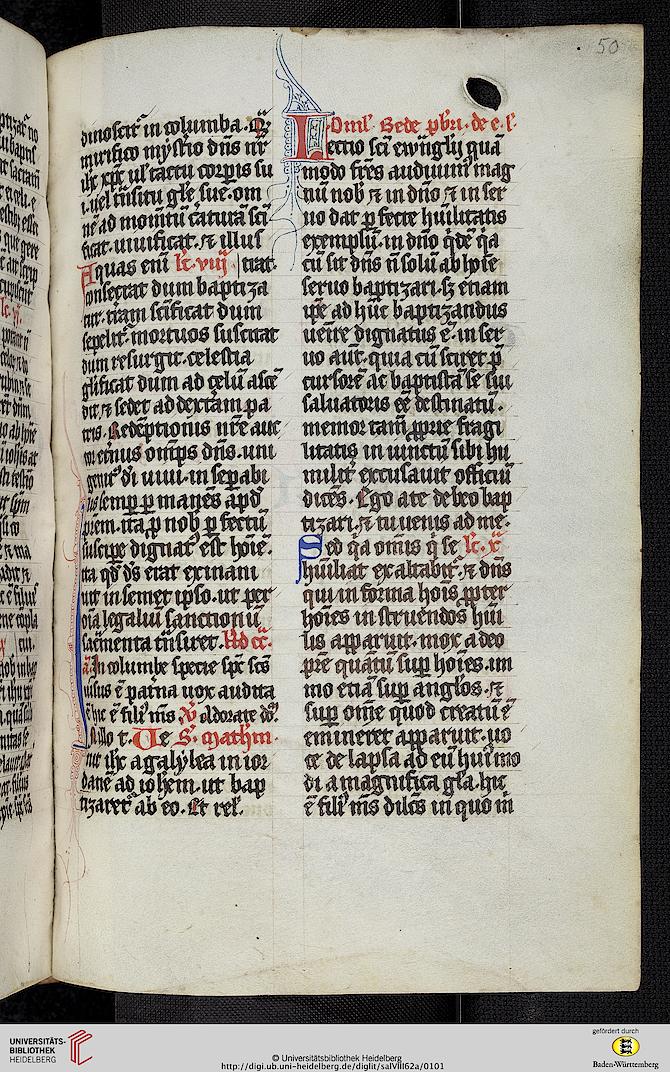 50
dinoscit᷑ in columba. Q̄
mirifico mỹst̄io dn̄s nr̄
ih̄c xp̄c ul᷑ tactu corp̱is su
i. uel t̄nsitu gl̄e sue. om
ne ad monitū c̄aturā sc̄i
ficat. uiuificat. ⁊ illus
Aquas eni lc̄. viij trat.
consecrat dum baptiza
tur. t̄ram sc̄ificat dum
sepelit᷑. mortuos suscitat
dum resurgit. celestia
gl̄ificat dum ad celū ascē
dit. ⁊ sedet ad dext̄am pa
tris. Redēptionis nr̄e auc
tor et̄nus om̄ps dn̄s. uni
genit᷑ dī uiui. in sep̱abi
lis semp̱ p̱manēs ap̄d
p̄rem. ita p̱ nob᷑ p̱fectū
suscip̱e dignat᷑ est hoīe.
ita qd̄ ds̄ erat exinani
uit in semet ipso. ut p̱er
oīa legaliū sanctionū
sac̄menta t̄nsiret. Ad cc̄.
a. In columbe specie sp̄c sc̄s
uisus ē pat̄na uox audita
ē hic ē fili᷑ m̄s xb᷑ oldorate dō.
Illo t. Ue S. mathm.
nit ih̄c a galylea in ior
danē ad ioh̄em. ut bap
tizaret᷑ ab eo. Et rel᷑.
Omil᷑. Bede p̄bri. de e. l᷑.
Lectio sc̄i ewn̄glij quā
modo fr̄es audiuim᷑ mag
nū nob᷑ ⁊ in dn̄o ⁊ in ser
uo dat p̱fecte hūilitatis
exemplū. in dn̄o qd̄e q̄a
cū sit dn̄s n̄ solū ab hoīe
seruo baptizari. s᷑ etiam
ip̄e ad hūc baptizandus
ueīre dignatus ē. in ser
uo aut̄. quia cū sciret p̄
cursorē ac baptistā se sui
saluatoris eē destinatū.
memor tam̄ pprie fragi
litatis in iunctū sibi hu
milit᷑ excusauit officiū
dicēs. Ego a te debeo bap
tizari. ⁊ tu uenis ad me.
Sed q̄a om̄is q̄ se lc̄. x̄
hūiliat exaltabit᷑. ⁊ dn̄s
qui in forma hoīs ppter
hoīes instruendos hūi
lis apparuit. mox a deo
p̄re quātū sup̱ hoīes. im
mo etiā sup̱ angl̄os. ⁊
sup̱ om̄e quod creatū ē
emineret apparuit. uo
ce delapsa ad eū huī᷑ mo
di a magnifica gl̄a. hic
ē fili᷑ m̄s dilc̄s in quo m̄
UNIVERSITÄTS-
BIBLIOTHEK
HEIDELBERG
© Universitätsbibliothek Heidelberg
http://digi.ub.uni-heidelberg.de/diglit/salVIII62a/0101
gefördert durch
Baden-Württemberg